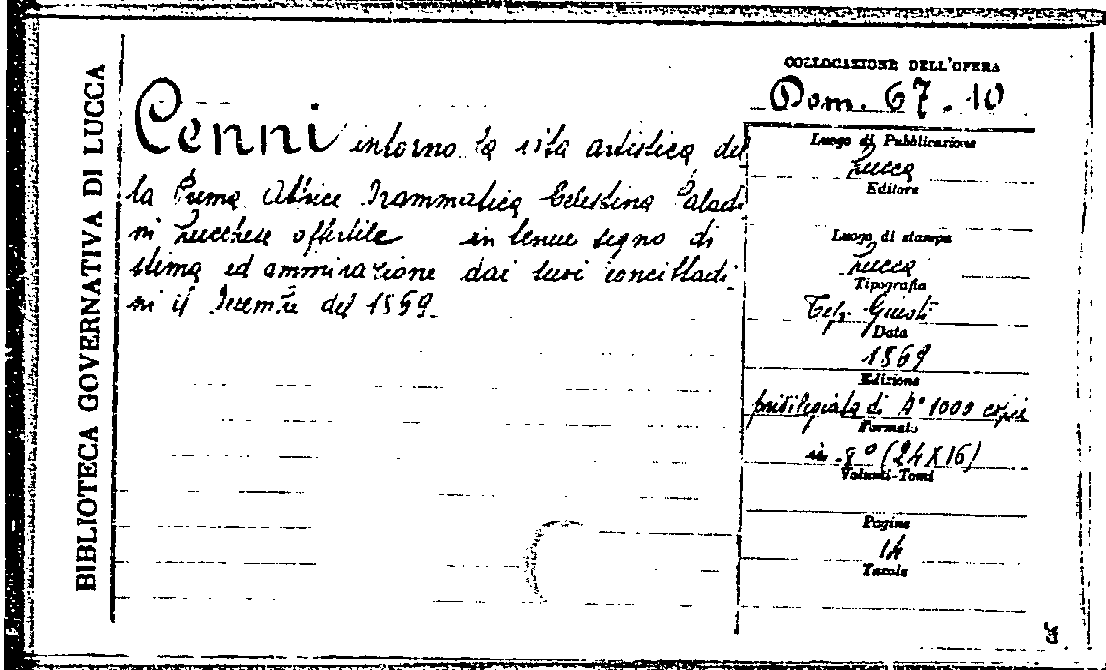 BIBLIOTECA GOVERNATIVA DI LUCCA
Cenni intorno la vita artistica del
la Prima Attrice Drammatica Celestina Paladi
ni Lucchese offertile in tenue segno di
stima ed ammirazione dai suoi concittadi
ni il Decembre del 1869.
COLLOCAZIONE DELL'OPERA
Dom. 67.10
Luogo di Pubblicazione
Lucca
Editore
Luogo di stampa
Lucca
Tipografia
Tip. Giusti
Data
1869
Edizione
privilegiata di N° 1000 copie
Formato
in 8° (24X16)
Volumi-Tomi
Pagine
14
Tavole